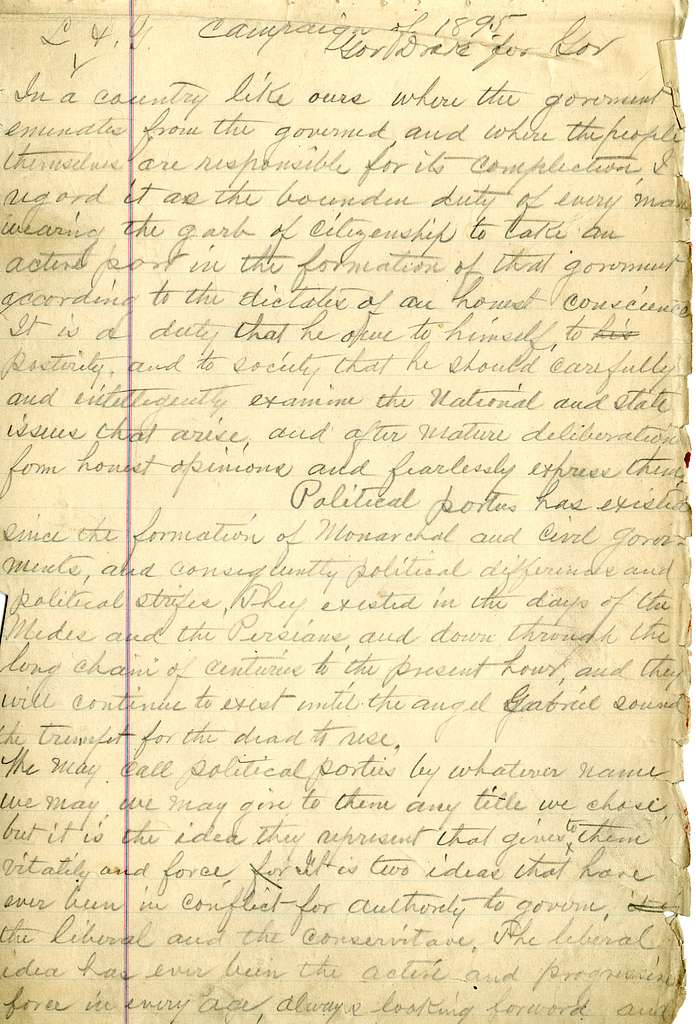 L. & G. Campaign of 1895
Gov Drake for Gov
In a country like ours where the goverment
emenates from the governed, and where the people
themselves are responsible for its complection, I
regard it as the bounden duty of every man
wearing the garb of citizenship to take an
active part in the formation of that goverment
according to the dictates of an honest conscience
It is a duty that he owe to himself, to his
postirity, and to society that he should carefully
and intellegently examine the National and State
issues that arise, and after mature deliberation
form honest opinions and fearlessly express them.
Political parties has existed
since the formation of Monarchal and civil gover-
ments, and consequently political differences and
political strifes. They existed in the days of the
Medes and the Persians, and down through the
long chain of centuries to the present hour, and they
will continue to exist until the angel Gabriel sound
the trumpet for the dead to rise.
We may call political parties by whatever name
we may, we may give to them any title we chose,
but it is the idea they represent that gives to them
vitality and force, for It is two ideas that have
ever been in conflict for authority to govern,
the liberal and the conservitave. The liberal
idea has ever been the active and progressive
force in every age, always looking forward and